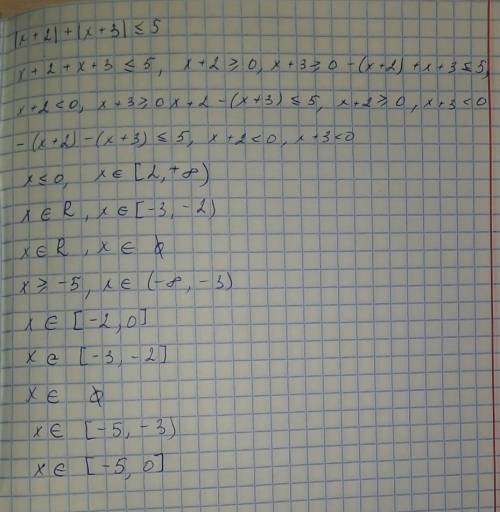 |x+2|+|x+3| ≤ 5
x+2+x+3 ≤ 5, x+2 ≥ 0, x+3 ≥ 0 -(x+2)+x+3 ≤ 5,
x+2<0, x+3 ≥ 0 x+2-(x+3) ≤ 5, x+2 ≥ 0, x+3<0
-(x+2)-(x+3) ≤ 5, x+2<0, x+3<0
x ≤ 0, x ∈ [2,+∞)
x ∈ R, x ∈ [-3,-2)
x ∈ R, x ∈ ∅
x ≥ -5, x ∈ (-∞,-3)
x ∈ [-2,0]
x ∈ [-3,-2]
x ∈ ∅
x ∈ [-5,-3)
x ∈ [-5,0]